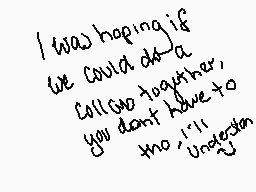 I was hoping if
we could do a
collab together,
you dont have to
tho, I'll understan